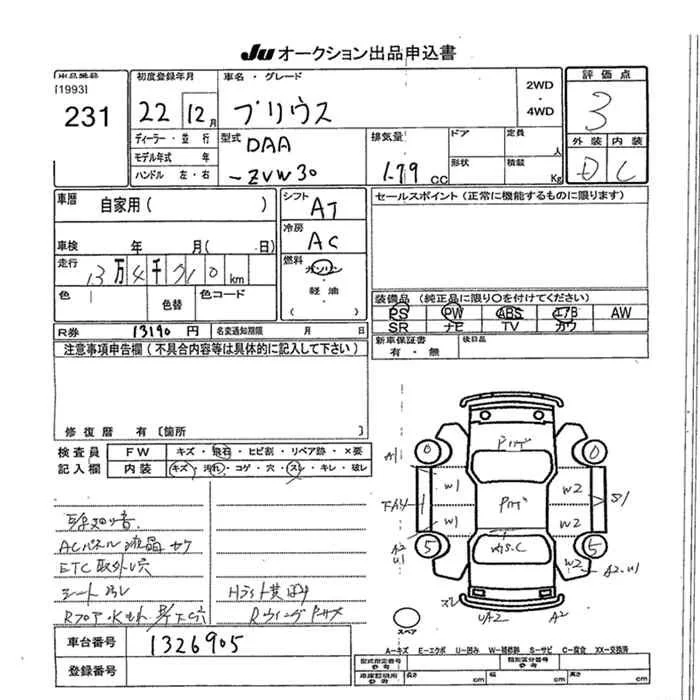 Ju オークション出品申込書
出品番号
[1993]
231
初度登録年月
22 12月
車名・グレード
プリウス
2WD
・
4WD
評価点
3
外装 内装
D C
ディーラー・並行
モデル年式 年
ハンドル 左・右
型式
DAA
-ZVW30
排気量
1.79 cc
ドア
定員
人
形状
積載
Kg
車歴
自家用( )
車検 年 月( 日)
走行
13万4千 km
色
色替
色コード
シフト
AT
冷房
AC
燃料
ガソリン
・
軽油
( )
セールスポイント(正常に機能するものに限ります)
装備品(純正品に限り○を付けてください)
PS PW ABS エアB AW
SR ナビ TV カワ
R券 13190円 名変通知期限 月 日
新車保証書
有・無
後日品
注意事項申告欄(不具合内容等は具体的に記入して下さい)
修復歴 有〔箇所 〕
検査員
記入欄
FW キズ・飛石・ヒビ割・リペア跡・×要
内装 キズ・汚れ・コゲ・穴・スレ・キレ・破レ
ACパネル液晶
ETC取外し穴
シート
Hライト黄
A1
W1
W2
S1
W1
W2
A2
U1
5
5
W2
A2・U1
スレ
UA2
A2
スペア
A-キズ E-エクボ U-凹み W-補修跡 S-サビ C-腐食 XX-交換済
車台番号 1326905
登録番号
型式指定番号
参考
類別区分番号
参考
車庫証明用
参考
長さ cm 幅 cm 高さ cm